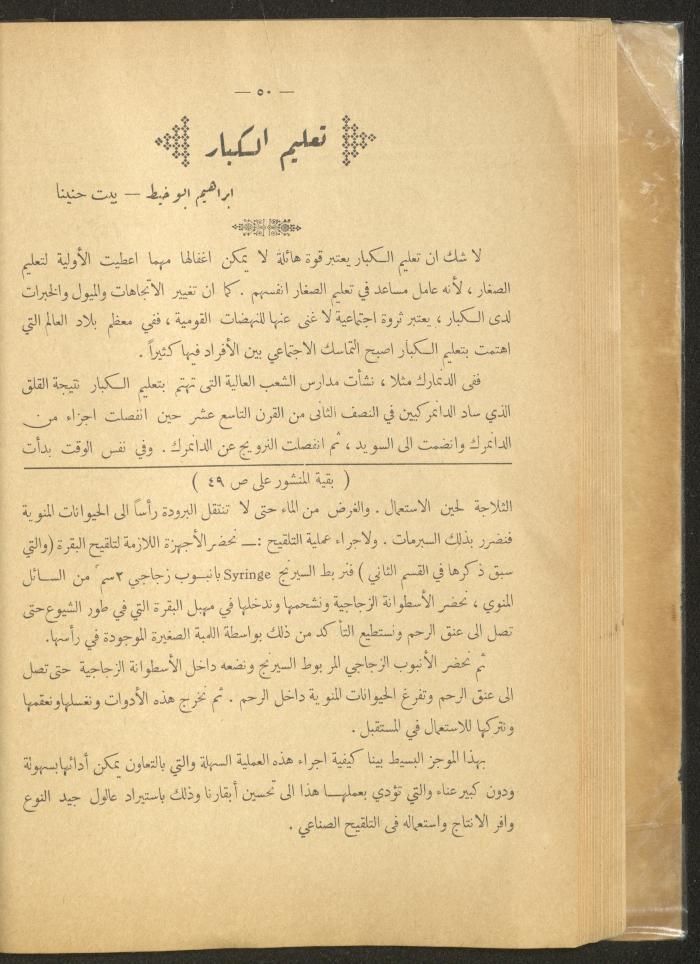 — ٥٠ —
تعليم الكبار
ابراهيم ابو خيط — بيت حنينا
لا شك ان تعليم الكبار يعتبر قوة هائلة لا يمكن اغفالها مهما اعطيت الأولية لتعليم
الصغار ، لأنه عامل مساعد في تعليم الصغار انفسهم . كما ان تغيير الاتجاهات والميول والخبرات
لدى الكبار ، يعتبر ثروة اجتماعية لا غنى عنها للنهضات القومية ، ففي معظم بلاد العالم التي
اهتمت بتعليم الكبار اصبح التماسك الاجتماعي بين الأفراد فيها كثيراً .
ففى الدنمارك مثلا ، نشأت مدارس الشعب العالية التى تهتم بتعليم الكبار نتيجة القلق
الذي ساد الدانمركيين في النصف الثانى من القرن التاسع عشر حين انفصلت اجزاء من
الدانمرك وانضمت الى السويد ، ثم انفصلت النرويج عن الدانمرك . وفي نفس الوقت بدأت
( بقية المنشور على ص ٤٩ )
الثلاجة لحين الاستعمال . والغرض من الماء حتى لا تنتقل البرودة رأساً الى الحيوانات المنوية
فتضرر بذلك السبرمات . ولاجراء عملية التلقيح :ــ نحضر الأجهزة اللازمة لتلقيح البقرة (والتي
سبق ذكرها في القسم الثاني ) فنربط السيرنج Syringe بانبوب زجاجي ٢سم٣ من السائل
المنوي ، نحضر الأسطوانة الزجاجية ونشحمها وندخلها في مهبل البقرة التي في طور الشيوع حتى
تصل الى عنق الرحم ونستطيع التأكد من ذلك بواسطة اللمبة الصغيرة الموجودة في رأسها.
ثم نحضر الأنبوب الزجاجي المربوط السيرنج ونضعه داخل الأسطوانة الزجاجية حتى تصل
الى عنق الرحم وتفرغ الحيوانات المنوية داخل الرحم . ثم نخرج هذه الأدوات ونغسلها ونعقمها
ونتركها للاستعمال في المستقبل .
بهذا الموجز البسيط بينا كيفية اجراء هذه العملية السهلة والتي بالتعاون يمكن أدائها بسهولة
ودون كبير عناء والتي تؤدي بعملهــا هذا الى تحسين أبقارنا وذلك باستيراد عالول جيد النوع
وافر الانتاج واستعماله فى التلقيح الصناعي .